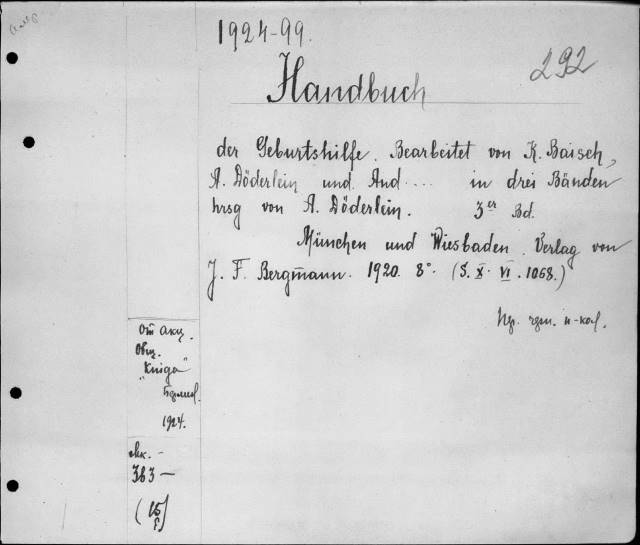 1924-99.
292
Handbuch
der Geburtshilfe. Bearbeitet von K. Baisch,
A. Döderlein und And.... in drei Bänden
hrsg von A. Döderlein. 3er Bd.
München und Wiesbaden. Verlag von
J. F. Bergmann. 1920. 8°. (S. X. VI. 1068.)
От акц.
Общ.
"Книга"
1924.
363 —